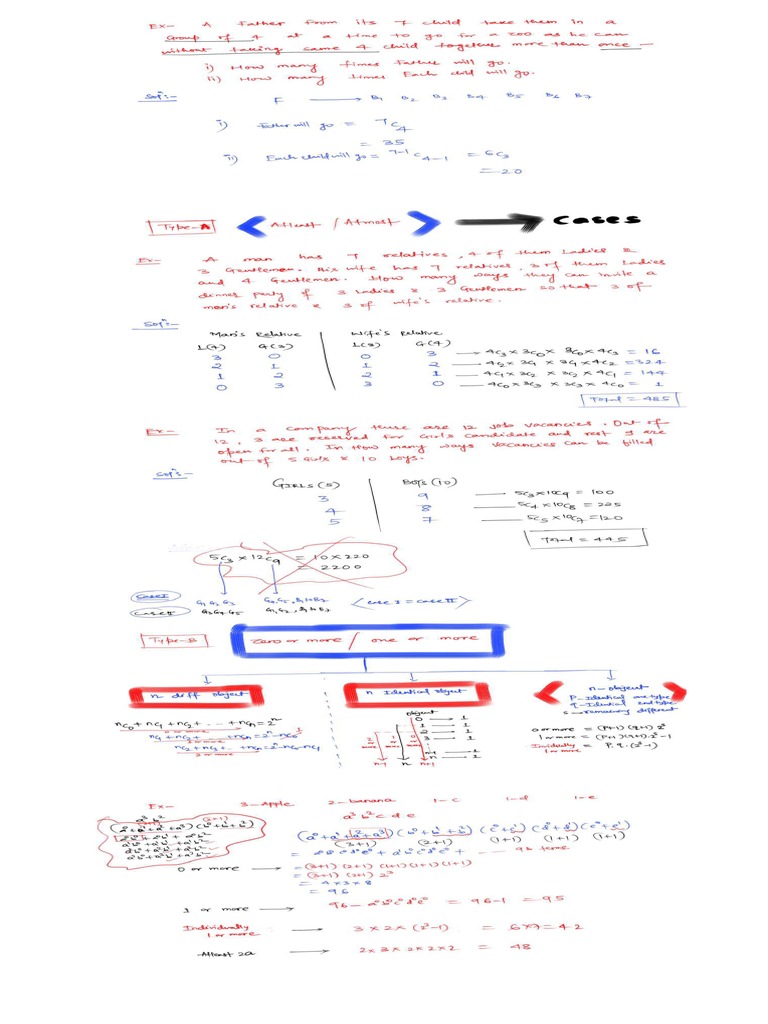 Ex- A Father From its 7 child take them in a
Group of 4 at a time to go for a zoo as he can
without taking same 4 child together more than once -
i) How many times Father will go.
ii) How many times Each child will go.
Sol^n:- F ⟶ B₁ B₂ B₃ B₄ B₅ B₆ B₇
i) Father will go = ⁷C₄
= 35
ii) Each child will go = ⁷⁻¹C₄₋₁ = ⁶C₃
= 20
Type-A < Atleast / Atmost > ⟶ Cases
Ex- A man has 7 relatives, 4 of them Ladies &
3 Gentlemen. His wife has 7 relatives, 3 of them Ladies
and 4 Gentlemen. How many ways they can invite a
dinner party of 3 Ladies & 3 Gentlemen so that 3 of
man's relative & 3 of wife's relative.
Sol^n:- Man's Relative | Wife's Relative
L(4) G(3) | L(3) G(4)
3 0 | 0 3 — 4C₃ × 3C₀ × 3C₀ × 4C₃ = 16
2 1 | 1 2 — 4C₂ × 3C₁ × 3C₁ × 4C₂ = 324
1 2 | 2 1 — 4C₁ × 3C₂ × 3C₂ × 4C₁ = 144
0 3 | 3 0 — 4C₀ × 3C₃ × 3C₃ × 4C₀ = 1
Total = 485
Ex- In a company there are 12 job vacancies. Out of
12, 3 are reserved for Girls candidate and rest 9 are
open for all. In How many ways vacancies can be filled
out of 5 Girls & 10 boys.
Sol^n:- GIRLS(5) | BOYS(10)
3 | 9 — 5C₃ × 10C₉ = 100
4 | 8 — 5C₄ × 10C₈ = 225
5 | 7 — 5C₅ × 10C₇ = 120
Total = 445
5C₃ × 12C₉ = 10 × 220
= 2200
Case I G₁ G₂ G₃ G₄, G₅, B₁ to B₇ < Case I = Case II >
Case II G₃ G₄ G₅ G₁, G₂, B₁ to B₇
Type-B Zero or more / one or more
n diff object
nC₀ + nC₁ + nC₂ + ... + nCn = 2ⁿ
0 or more
nC₁ + nC₂ + ... + nCn = 2ⁿ - nC₀
1 or more
nC₂ + nC₃ + ... + nCn = 2ⁿ - nC₀ - nC₁
2 or more
n Identical object
object
0 → 1
1 → 1
2 → 1
3 → 1
n-1 → 1
n → 1
2 or more
1 or more
0 or more
n-1 n n+1
n-object
P-Identical one type
q-Identical 2nd type
s - remaining different
0 or more = (P+1)(q+1) 2ˢ
1 or more = (P+1)(q+1) 2ˢ - 1
Individually 1 or more = P. q. (2ˢ-1)
Ex- 3-Apple 2-banana 1-c 1-d 1-e
a³ b² c d e
a³ b²
(2+1)
(a⁰+a¹+a²+a³)(b⁰+b¹+b²)
(a⁰+a¹+a²+a³)(b⁰+b¹+b²)(c⁰+c¹)(d⁰+d¹)(e⁰+e¹)
(3+1) (2+1) (1+1) (1+1) (1+1)
= a⁰b⁰c⁰d⁰e⁰ + a¹b⁰c⁰d⁰e⁰ + ---- 96 terms
0 or more ⟶ = (3+1)(2+1)(1+1)(1+1)(1+1)
= (3+1)(2+1) 2³
= 4 × 3 × 8
= 96
1 or more ⟶ 96 - a⁰b⁰c⁰d⁰e⁰ = 96-1 = 95
Individually 1 or more ⟶ 3 × 2 × (2³-1) = 6×7 = 42
Atleast 2a ⟶ 2 × 3 × 2 × 2 × 2 = 48